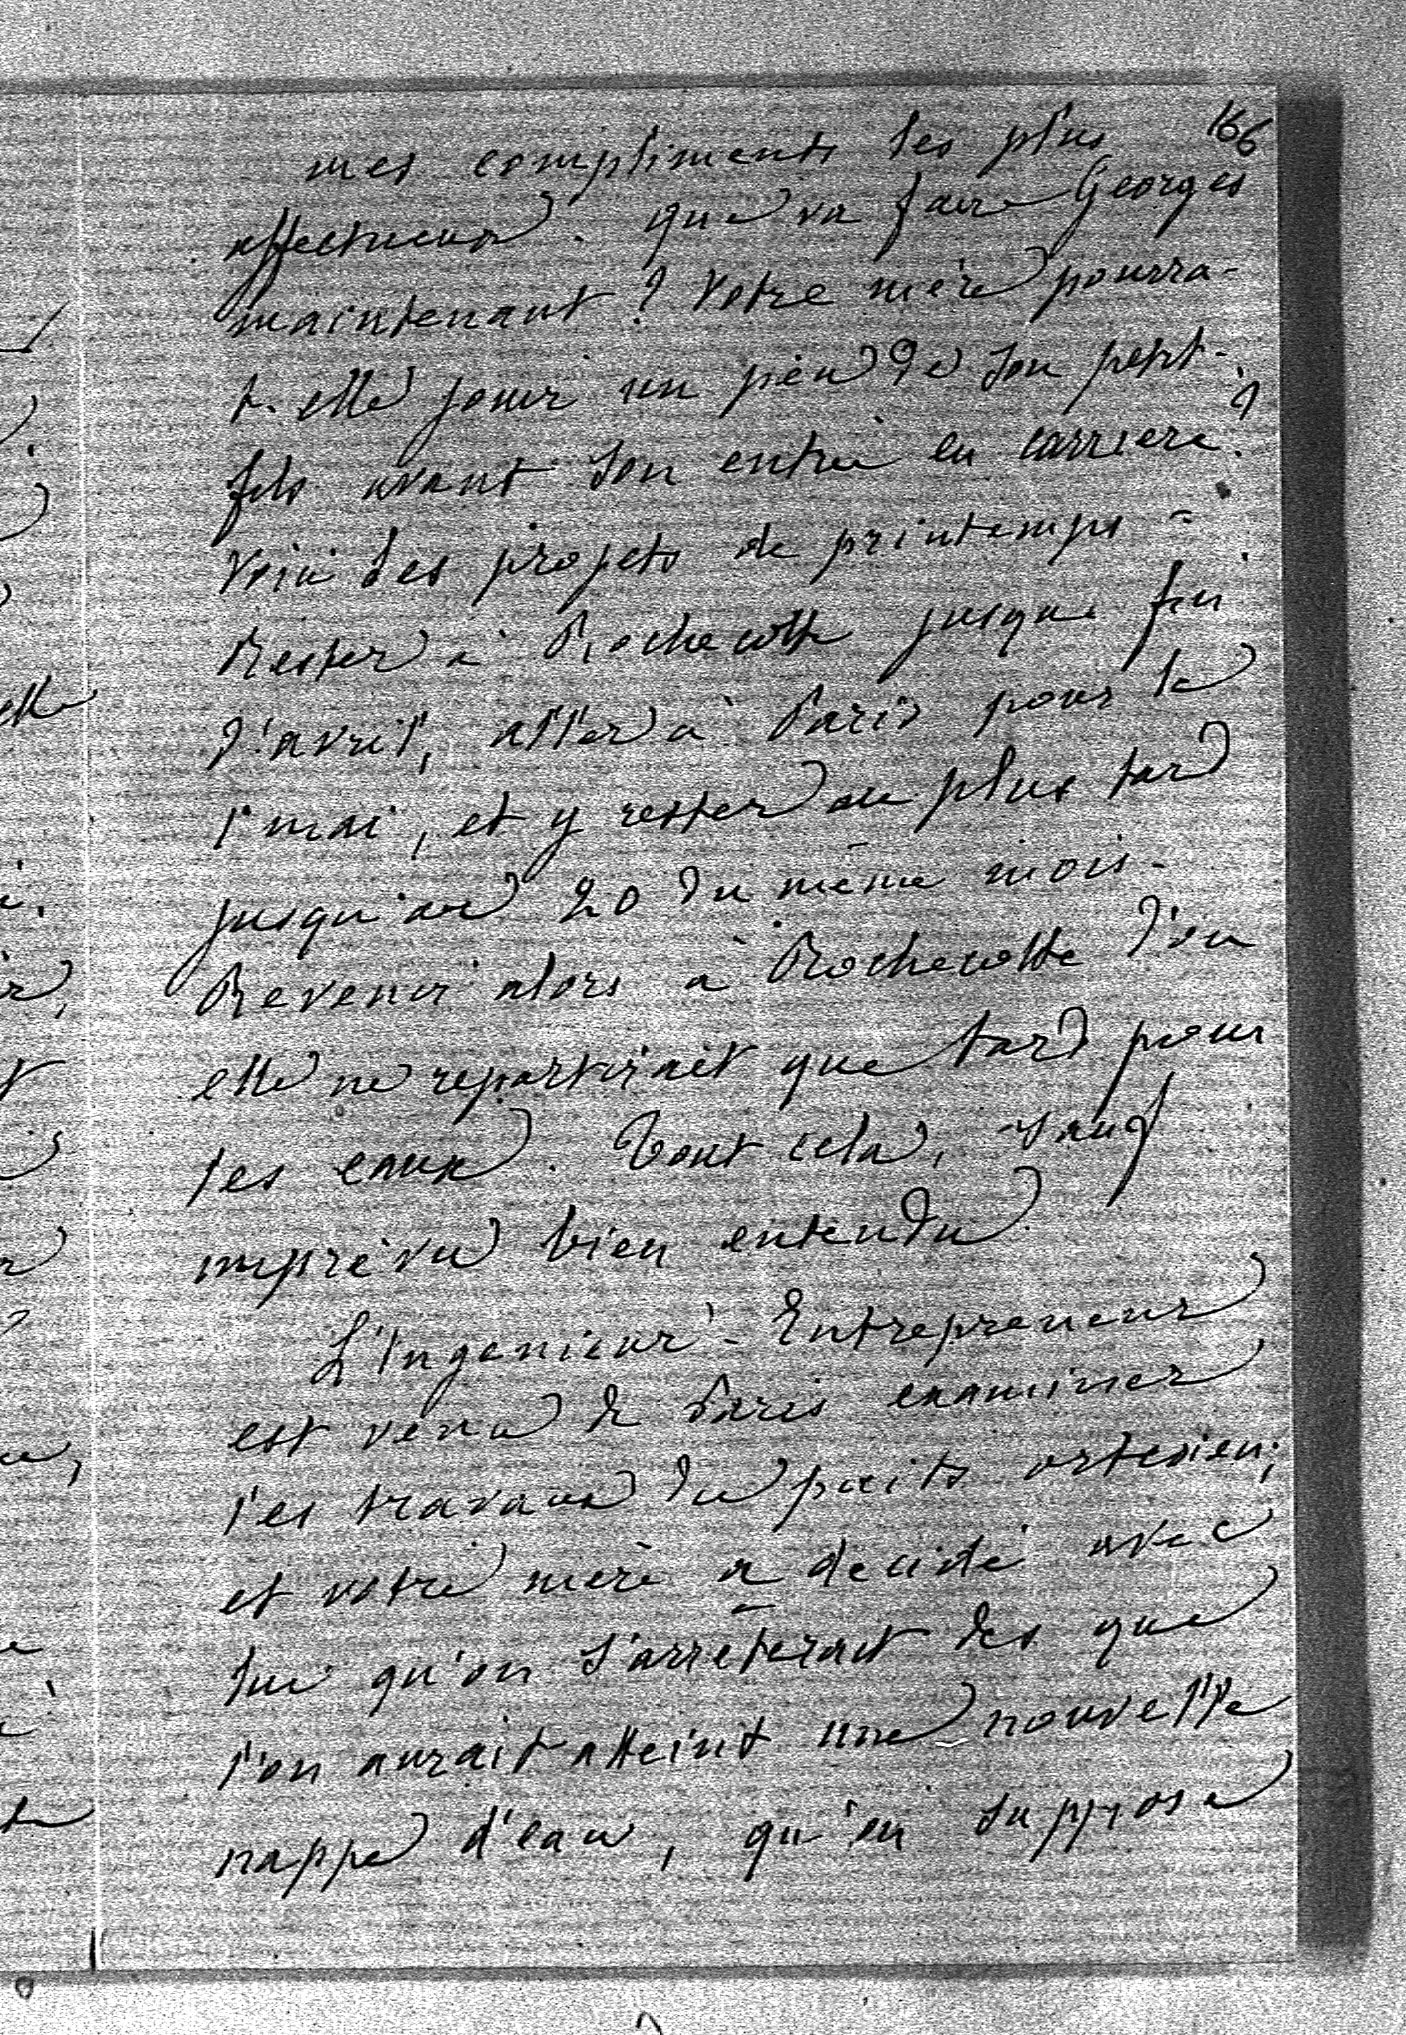 166
mes compliments les plus
affectueux. que va faire Georges
maintenant ? Votre mère pourra-
t-elle jouir un peu de son petit-
fils avant son entrée en carrière ?
Voici ses projets de printemps -
Rester à Rochecotte jusque fin
d'avril, aller à Paris pour le
1 mai, et y rester au plus tard
jusqu'au 20 du même mois -
Revenir alors à Rochecotte d'où
elle ne repartirait que tard pour
les eaux. Tout cela, sauf
imprévu bien entendu.
L'Ingenieur - Entrepreneur
est venu de Paris examiner
les travaux du puits artesien;
et votre mère a decidé avec
lui qu'on s'arrêterait dès que
l'on aurait atteint une nouvelle
nappe d'eau, qu'on suppose